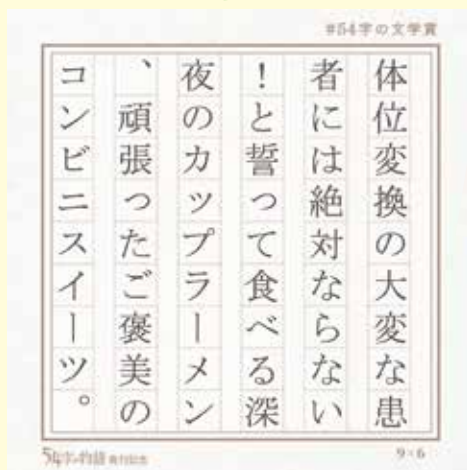 #54字の文学賞
体位変換の大変な患
者には絶対ならない
！と誓って食べる深
夜のカップラーメン
、頑張ったご褒美の
コンビニスイーツ。
54字の物語 発刊記念
9×6